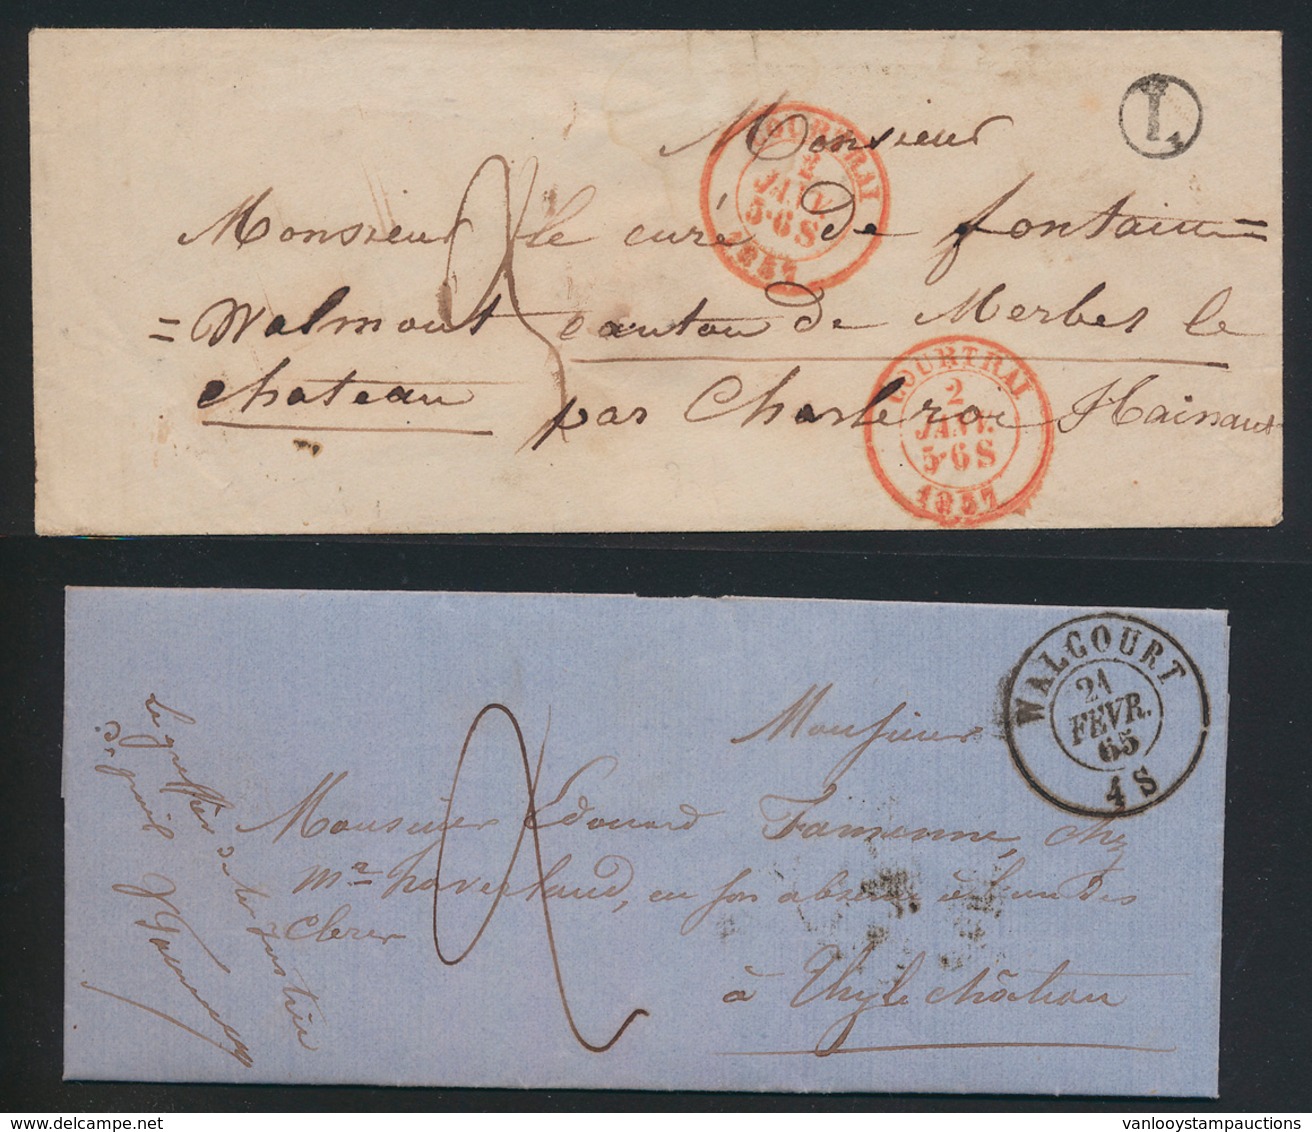 Monsieur
L
COURTRAI
2
JANV.
5-6 S
1857
Monsieur le curé de fontaine=
=Walmont canton de Merbes le
chateau par Charleroi Hainaut
COURTRAI
2
JANV.
5-6 S
1857
WALCOURT
21
FEVR.
65
4 S
Monsieur
Monsieur Edouard Famenne, chez
en son absence à l'un des
Clercs
à Thy le château
Le greffier de la justice
de paix
delcampe.net
vanlooystampauctions